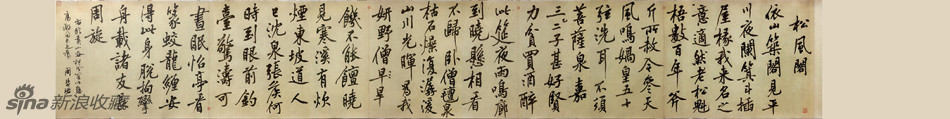 松風閣
依山築閣見平
川夜闌箕斗插
屋椽我來名之
意適然老松魁
梧數百年斧
斤所赦今參天
風鳴媧皇五十
弦洗耳不須
菩薩泉嘉二
三子甚好賢
力貧買酒醉
此筵夜雨鳴廊
到曉懸相看
不歸臥僧氈泉
枯石燥復潺湲
山川光暉為我
妍野僧早
饑不能饘曉
見寒溪有炊
煙東坡道人
已沈泉張侯何
時到眼前釣
臺驚濤可
晝眠怡亭看
篆蛟龍纏安
得此身脫拘攣
舟載諸友長
周旋
sina
新浪收藏